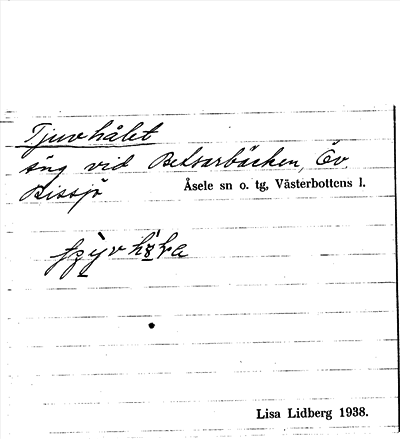 Tjuvhålet
äng vid Betsarbäcken, Öv.
Bissjö Åsele sn o. tg, Västerbottens l.
Lisa Lidberg 1938.